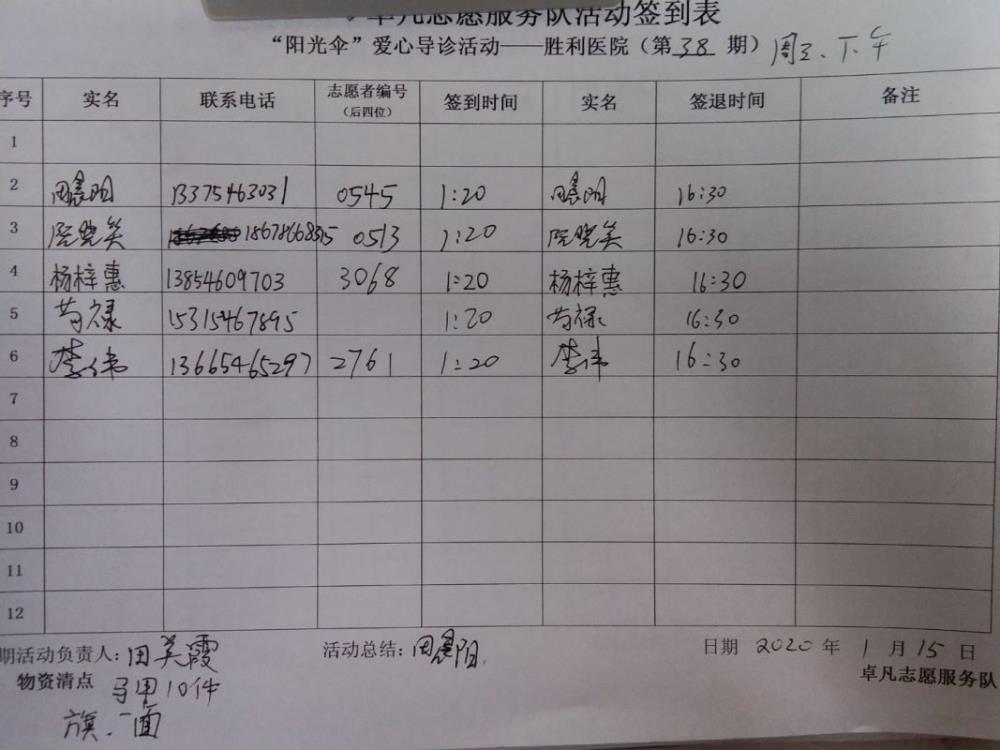 卓凡志愿服务队活动签到表
“阳光伞”爱心导诊活动——胜利医院（第 38 期）周三、下午
序号 实名 联系电话 志愿者编号（后四位） 签到时间 实名 签退时间 备注
1
2 田晨阳 13375463031 0545 1:20 田晨阳 16:30
3 18678668315 0513 1:20 16:30
4 杨梓惠 13854609703 3068 1:20 杨梓惠 16:30
5 15315467895 1:20 16:30
6 李伟 13665465297 2761 1:20 李伟 16:30
7
8
9
10
11
12
期活动负责人：田美霞 活动总结：田晨阳 日期 2020 年 1 月 15 日
物资清点 马甲10件 卓凡志愿服务队
旗、一面